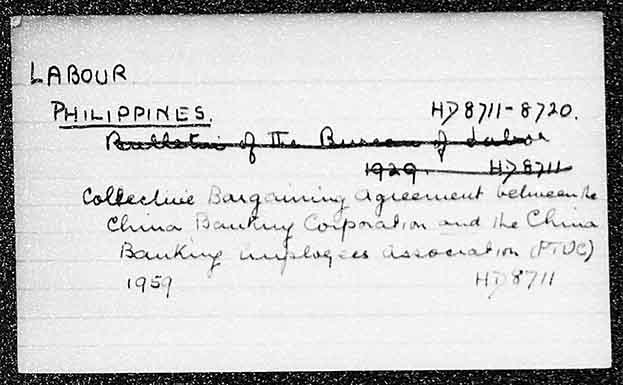 LABOUR
PHILIPPINES. HD8711-8720.
Bulletin of the Bureau of Labor
1929. HD8711
Collective Bargaining Agreement between the
China Banking Corporation and the China
Banking Employees Association (PTUC)
1959 HD8711